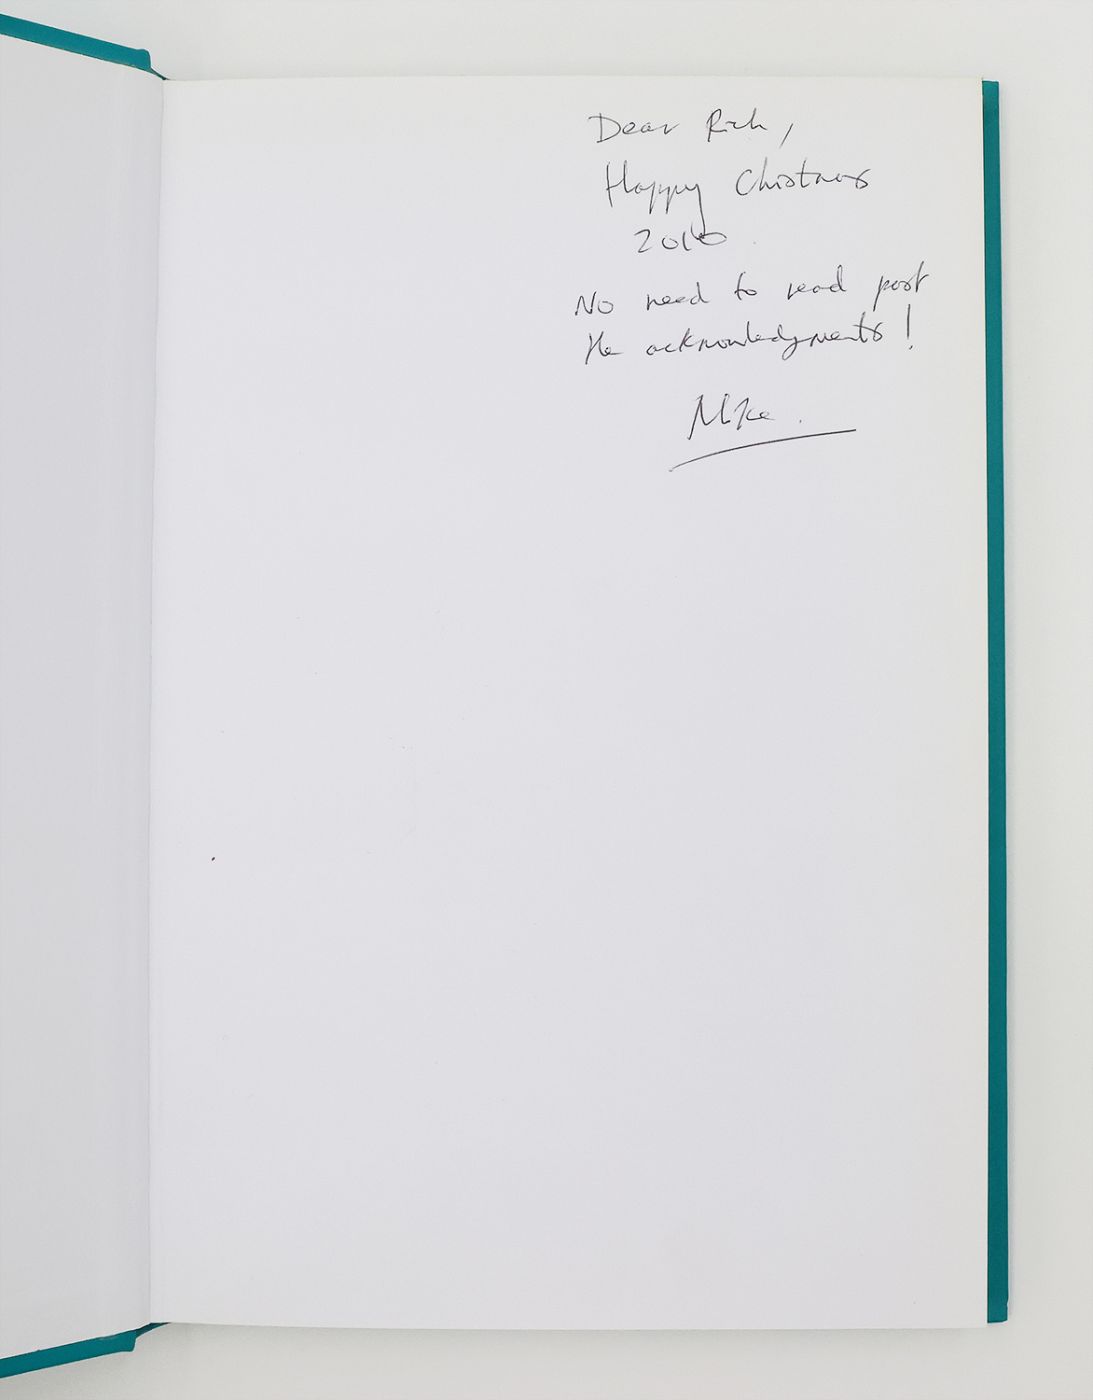 Dear Rich,
Happy Christmas
2010
No need to read past
the acknowledgments!
Mike.